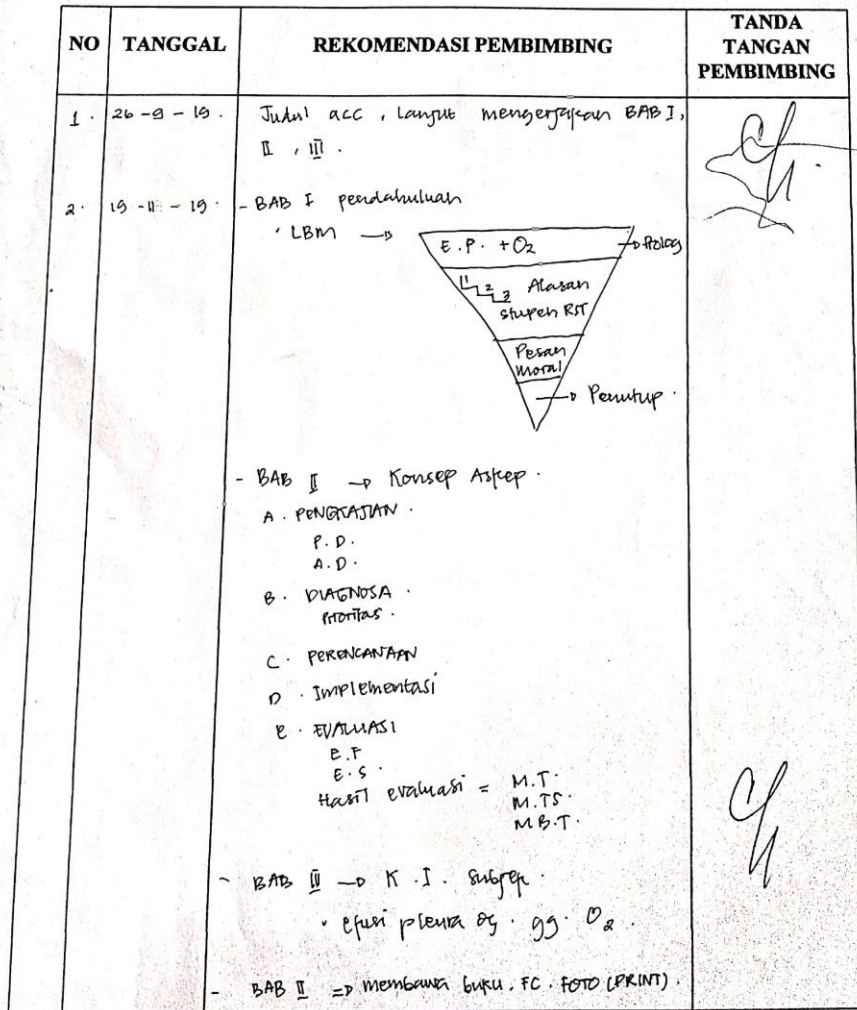 NO TANGGAL REKOMENDASI PEMBIMBING TANDA TANGAN PEMBIMBING
1. 26-9-19. Judul acc, lanjut mengerjakan BAB I,
II, III.
2. 19-11-19. - BAB I pendahuluan
· LBM →
E.P. + O2 → Prolog
1 2 3 Alasan
stupen RST
Pesan
Moral
→ Penutup.
- BAB II → Konsep Askep.
A. PENGKAJIAN.
P.D.
A.D.
B. DIAGNOSA.
Prioritas.
C. PERENCANAAN
D. Implementasi
E. EVALUASI
E.F
E.S.
Hasil evaluasi = M.T.
M.TS.
M.B.T.
- BAB III → K.I. Subjek.
· efusi pleura dg. gg. O2.
- BAB II => membawa buku. FC. FOTO (PRINT).